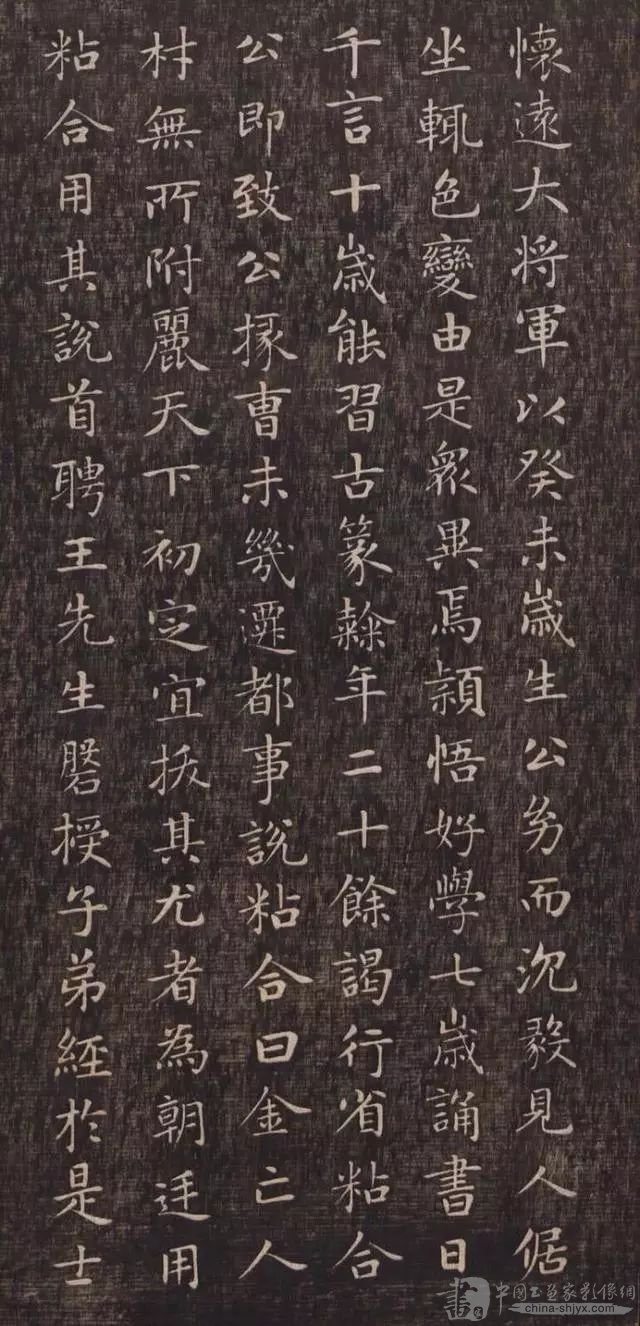 懷遠大将軍以癸未嵗生公㓜而沉毅見人倨
坐輒色變由是衆異焉頴悟好學七嵗誦書日
千言十嵗能習古篆隸年二十餘謁行省粘合
公即致公掾曹未幾遷都事說粘合曰金亡人
材無所附麗天下初定宜拔其尤者為朝廷用
粘合用其說首聘王先生磐授子弟經於是士
書 中國书画家影像網
china-shjyx.com